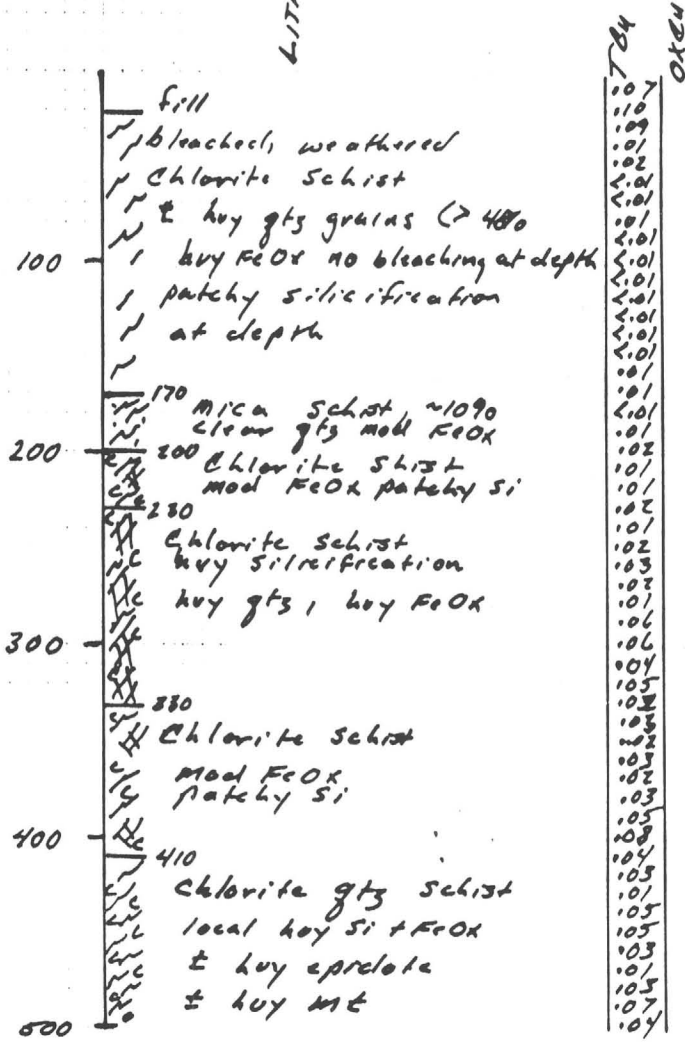 LITH
TCu
OXCU
fill
bleached, weathered
Chlorite Schist
± hvy qtz grains (> 40%
100
hvy FeOx no bleaching at depth
patchy silicification
at depth
170
mica schist, ~10%
clear qtz mod FeOx
200
200
Chlorite Shist
mod FeOx patchy Si
230
Chlorite schist
hvy silicification
hvy qtz, hvy FeOx
300
330
Chlorite schist
mod FeOx
patchy Si
400
410
Chlorite qtz schist
local hvy Si + FeOx
± hvy epidote
± hvy mt
500
.07
.10
.09
.01
.02
<.01
<.01
.01
<.01
<.01
<.01
<.01
<.01
<.01
<.01
.01
.01
<.01
.01
.02
.01
.01
.02
.01
.02
.03
.02
.01
.06
.06
.04
.05
.03
.02
.03
.05
.08
.04
.03
.01
.05
.05
.03
.01
.03
.07
.04